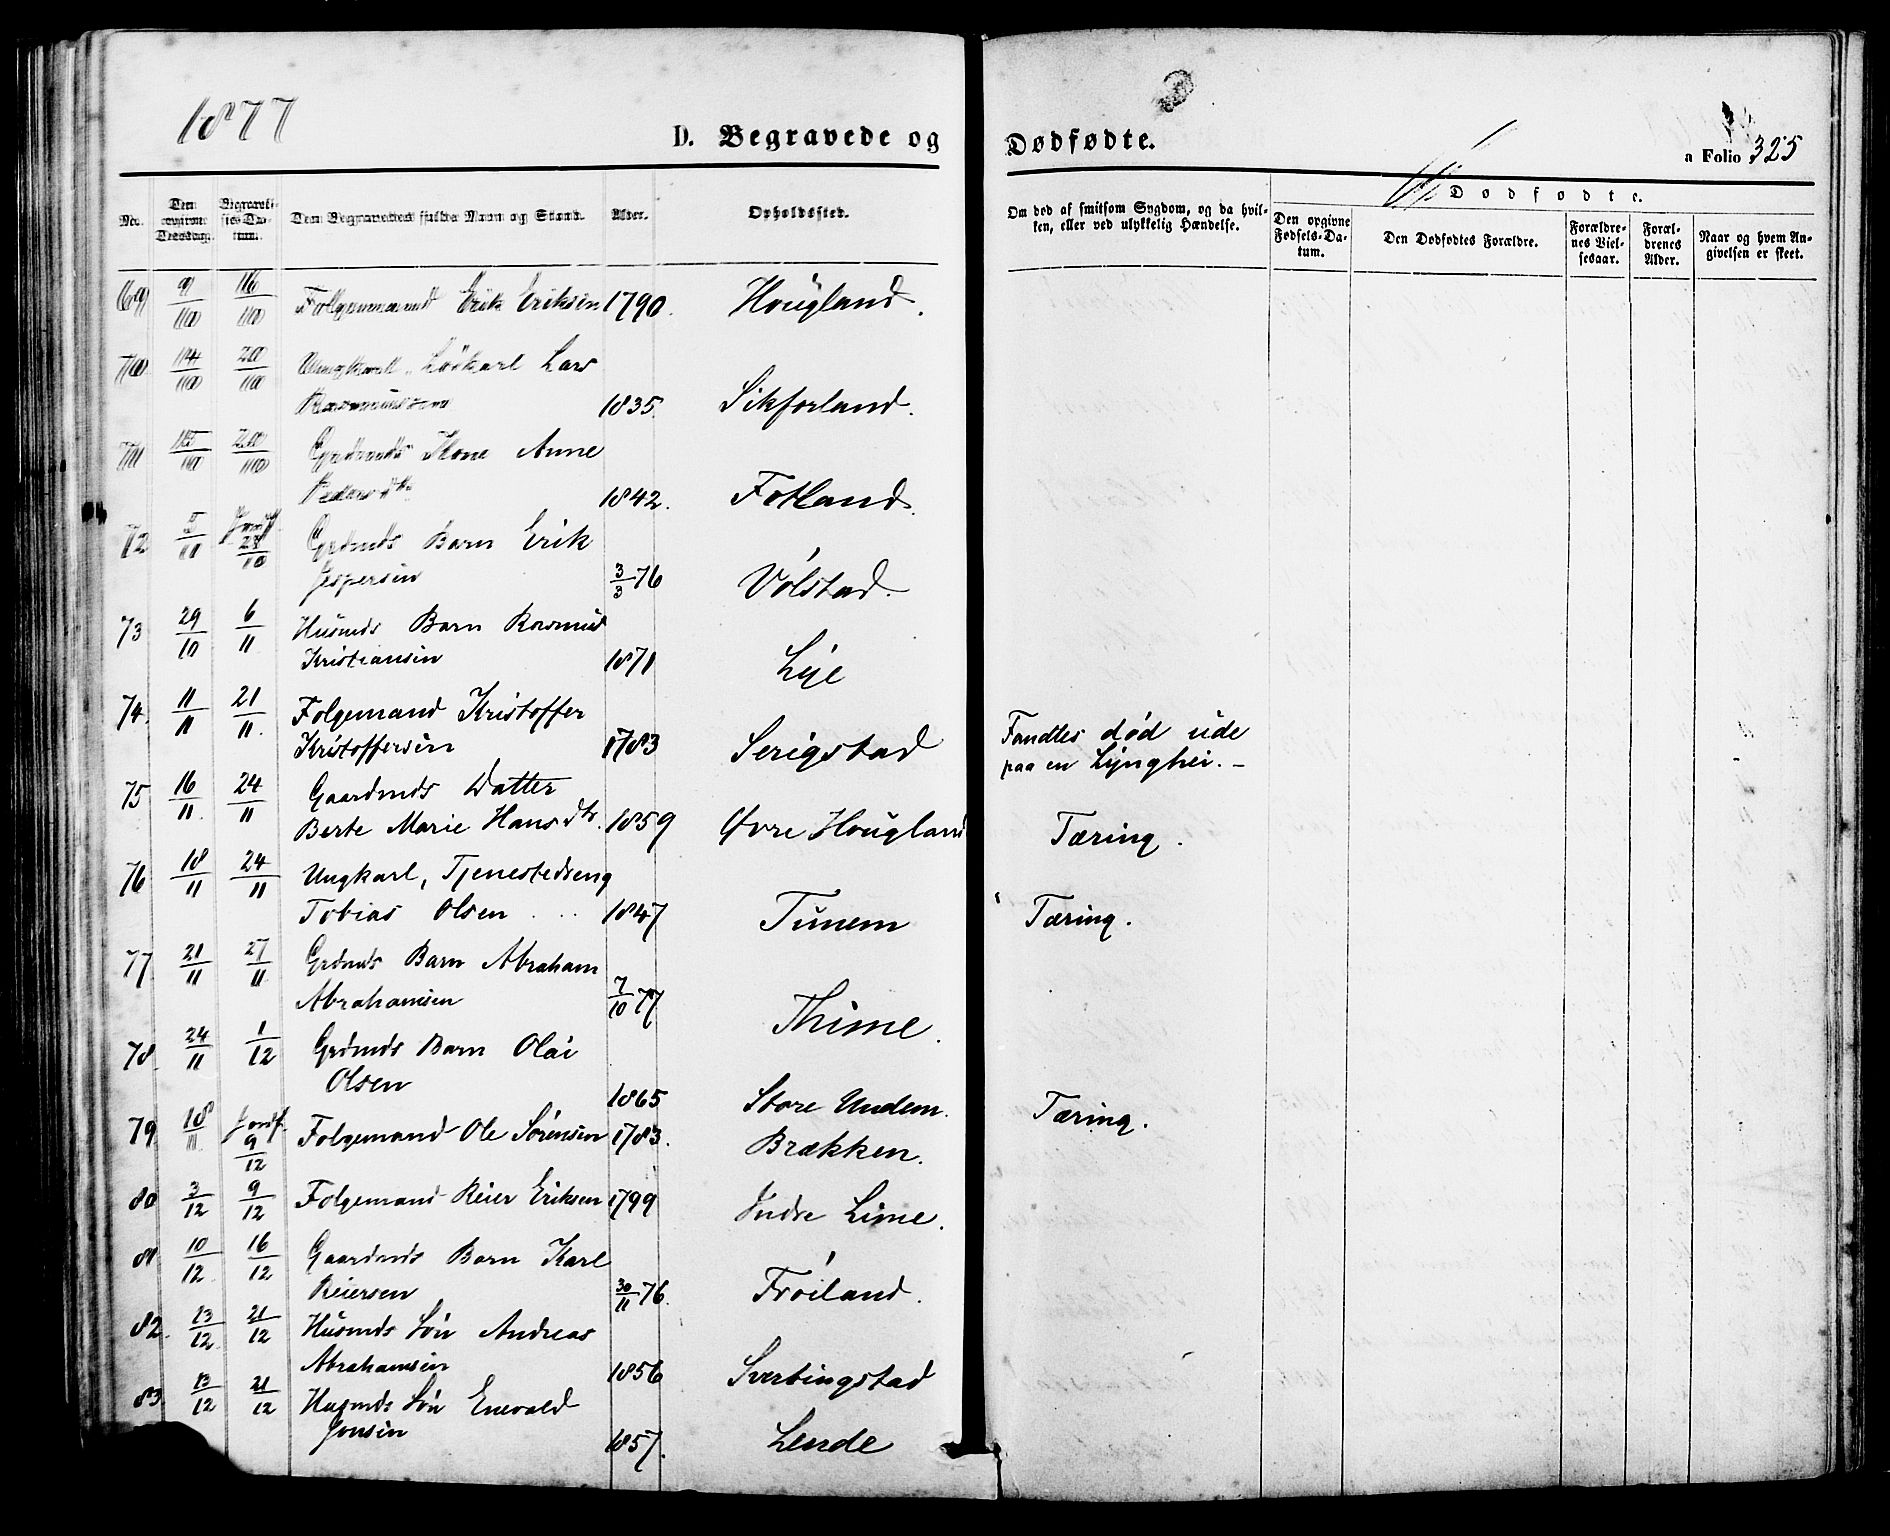 1877
D. Begravede og Dødfødte.
a Folio 325
No.
Den opgivne Dødsdag.
Begravelsens Datum.
Den Begravedes fulde Navn og Stand.
Alder.
Opholdssted.
Om død af smitsom Sygdom, og da hvilken, eller ved ulykkelig Hændelse.
Dødfødte.
Den opgivne Fødsels-Datum.
Den Dødfødtes Forældre.
Forældrenes Vielsesaar.
Forældrenes Alder.
Naar og hvem Angivelsen er skeet.
69 9/10 16/10 Folgemand Erik Eriksen 1790. Hougland.
70 14/10 20/10 Ungkarl, Løskarl Lars
Rasmussen 1835. Sikforland.
71 15/10 20/10 Grdmds Kone Anne
Pedersdtr 1842. Fotland.
72 Jordf. 28/10 Grdmds Barn Erik
Jespersen 3/3 76 Vólstad.
73 29/10 6/11 Husmds Barn Rasmus
Kristiansen 1871 Lye
74. 11/11 21/11. Folgemand Kristoffer
Kristoffersen 1783 Serigstad Fandtes død ude
paa en Lynghei. –
75 16/11. 24/11 Gaardmds Datter
Berte Marie Hansdtr. 1859 Øvre Hougland Tæring.
76 18/11 24/11 Ungkarl, Tjenestedreng
Tobias Olsen 1847 Tunem Tæring.
77 21/11 27/11. Grdmds Barn Abraham
Abrahamsen 7/10 77 Thime.
78. 24/11 1/12 Grdmds Barn Olai
Olsen 1865 Store Undem. Tæring.
79. 18/11. Jordf. 9/12 Folgemand Ole Sørensen 1783. Brækken.
80 3/12 9/12 Folgemand Reier Eriksen 1799 Indre Lime.
81 10/12. 16/12 Gaardmds Barn Karl
Reiersen 30/11 76. Frøiland.
82. 13/12 21/12 Husmds Søn Andreas
Abrahamsen 1856 Svertingstad
83 13/12 21/12 Husmds Søn Enevald
Jonsen 1857. Lende